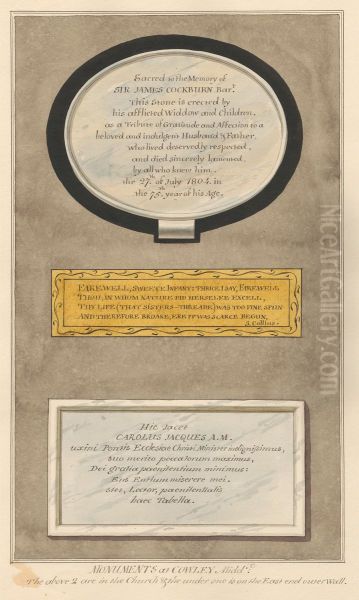 Sacred to the Memory of
SIR JAMES COCKBURN Bart.
This Stone is erected by
his afflicted Widdow and Children,
as a Tribute of Gratitude and Affection to a
beloved and indulgent Husband & Father,
who lived deservedly respected,
and died sincerely lamented
by all who knew him,
the 27th of July 1804. in
the 75th year of his Age.
FAREWELL, SWEETE INFANT: THRICE I SAY, FAREWELL
THOU, IN WHOM NATURE DID HERSELFE EXCELL,
THY LIFE (THAT SISTERS–THREADE) WAS TOO FINE SPUN
AND THEREFORE BROAKE, ERE IT WAS SCARCE BEGUN.
S. Collins.
Hic Jacet
CAROLUS JACQUES A.M.
uxini Pontis Ecclesiæ Christi Minister indignissimus,
suo merito peccatorum maximus,
Dei gratia pænitentium minimus:
Ens Entium miserere mei.
Lector, pænitentialis
haec Tabella.
MONUMENTS at COWLEY, Middx.
The above 2 are in the Church & the under one is on the East end outer Wall.
NiceArtGallery.com